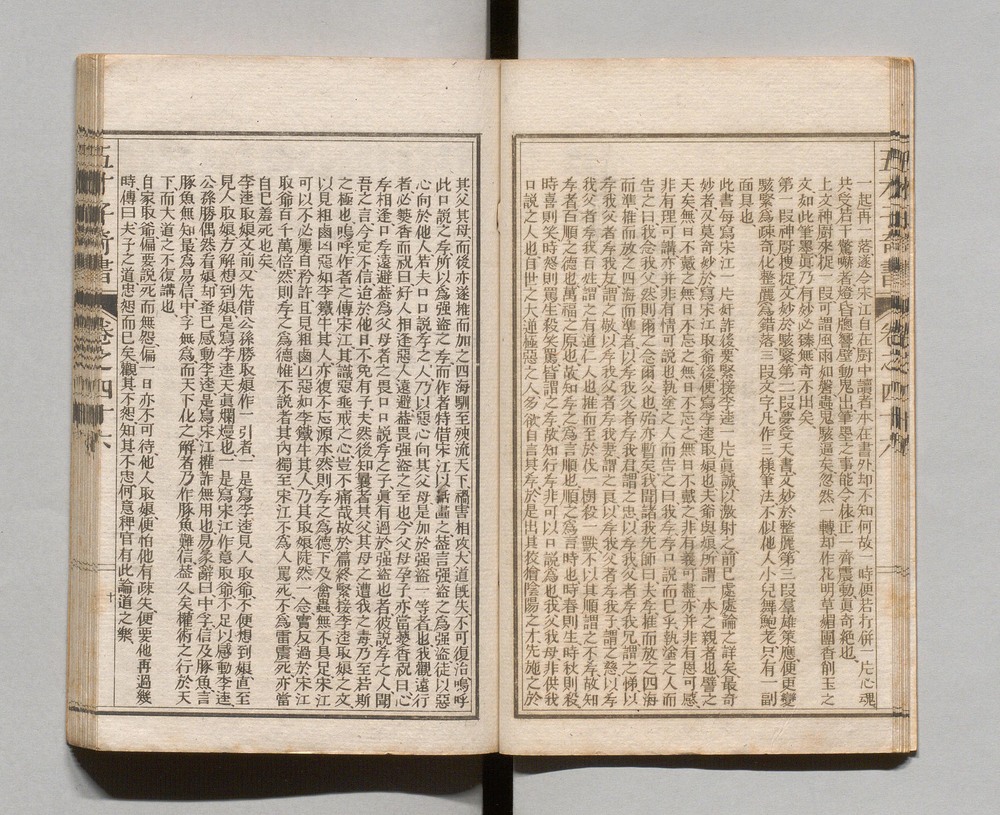 一起再一落遂令宋江自在廚中讀者本在書外却不知何故一時便若打併一片心魂
共受若干驚嚇者燈昏牕響壁動鬼出筆墨之事能令依正一齊震動眞奇絶也
上文神廚來捉一段可謂風雨如磐蟲鬼駭逼矣忽然一轉却作花明草媚團香削玉之
文如此筆墨眞乃有妙必臻無奇不出矣
第一段神廚搜捉文妙於駭緊第二段夢受天書文妙於整麗第三段羣雄策應便更變
駭緊爲疎奇化整麗爲錯落三段文字凡作三樣筆法不似他人小兒舞鮑老只有一副
面具也
此書每寫宋江一片奸詐後要緊接李逵一片眞誠以激射之前已處處論之詳矣最奇
妙者又莫奇妙於寫宋江取爺後便寫李逵取娘也夫爺與娘所謂一本之親者也譬之
天矣無日不戴之無日不忘之無日不忘之無日不戴之非有義可盡亦并非有恩可感
非有理可講亦并非有情可說也執塗之人而告之曰我孝孝口說而已乎執塗之人而
告之曰我念我父然則爾之念爾父也殆亦暫矣我聞諸我先師曰夫孝推而放之四海
而準推而放之四海而準者以孝我父者孝我君謂之忠以孝我父者孝我兄謂之悌以
孝我父者孝我友謂之敬以孝我父者孝我妻謂之良以孝我父者孝我子謂之慈以孝
我父者孝我百姓謂之有道仁人也推而至於伐一樹殺一獸不以其順謂之不孝故知
孝者百順之德也萬福之原也故知孝之爲言順也順之爲言時也時春則生時秋則殺
時喜則笑時怒則罵生殺笑罵皆謂之孝故知行孝非可以口說爲也我父我母非供我
口說之人也自世之大逆極惡之人多欲自言其孝於是出其狡獪陰陽之才先施之於
其父其母而後亦遂推而加之四海馴至殃流天下禍害相攻大道旣失不可復治嗚呼
此口說之孝所以爲强盜之孝而作者特借宋江以活畫之蓋言强盜之爲强盜徒以惡
心向於他人若夫口口說孝之人乃以惡心向其父母是加於强盜一等者也我觀遠行
者必爇香而祝曰好人相逢惡人遠避蓋畏强盜之至也今父母孕子亦當爇香祝曰心
孝相逢口孝遠避蓋爲父母者之畏口口說孝之子眞有過於强盜也者彼說孝之人聞
吾之言今定不信迨於他日不免有子夫然後知曩者其父其母之遭我之毒乃至若斯
之極也嗚呼作者之傳宋江其識惡垂戒之心豈不痛哉故於篇終緊接李逵取娘之文
以見粗鹵凶惡如李鐵牛其人亦復不忘源本然則孝之爲德下及禽蟲無不具足宋江
可以不必屢自矜許且見粗鹵凶惡如李鐵牛其人乃其取娘陡然一念實反過於宋江
取爺百千萬倍然則孝之爲德惟不說者其内獨至宋江不爲人罵死不爲雷震死亦當
自己羞死也矣
李逵取娘文前又先借公孫勝取娘作一引者一是寫李逵見人取爺不便想到娘直至
見人取娘方解想到娘是寫李逵天眞爛熳也一是寫宋江作意取爺不足以感動李逵
公孫勝偶然看娘却蚤已感動李逵是寫宋江權詐無用也易彖辭曰中孚信及豚魚言
豚魚無知最爲易信中孚無爲而天下化之解者乃作豚魚難信蓋久矣權術之行於天
下而大道之不復講也
自家取爺偏要說死而無怨偏一日亦不可待他人取娘便怕他有疎失便要他再過幾
時傳曰夫子之道忠恕而已矣觀其不恕知其不忠何意稗官有此論道之樂
五才子奇書
卷之四十六